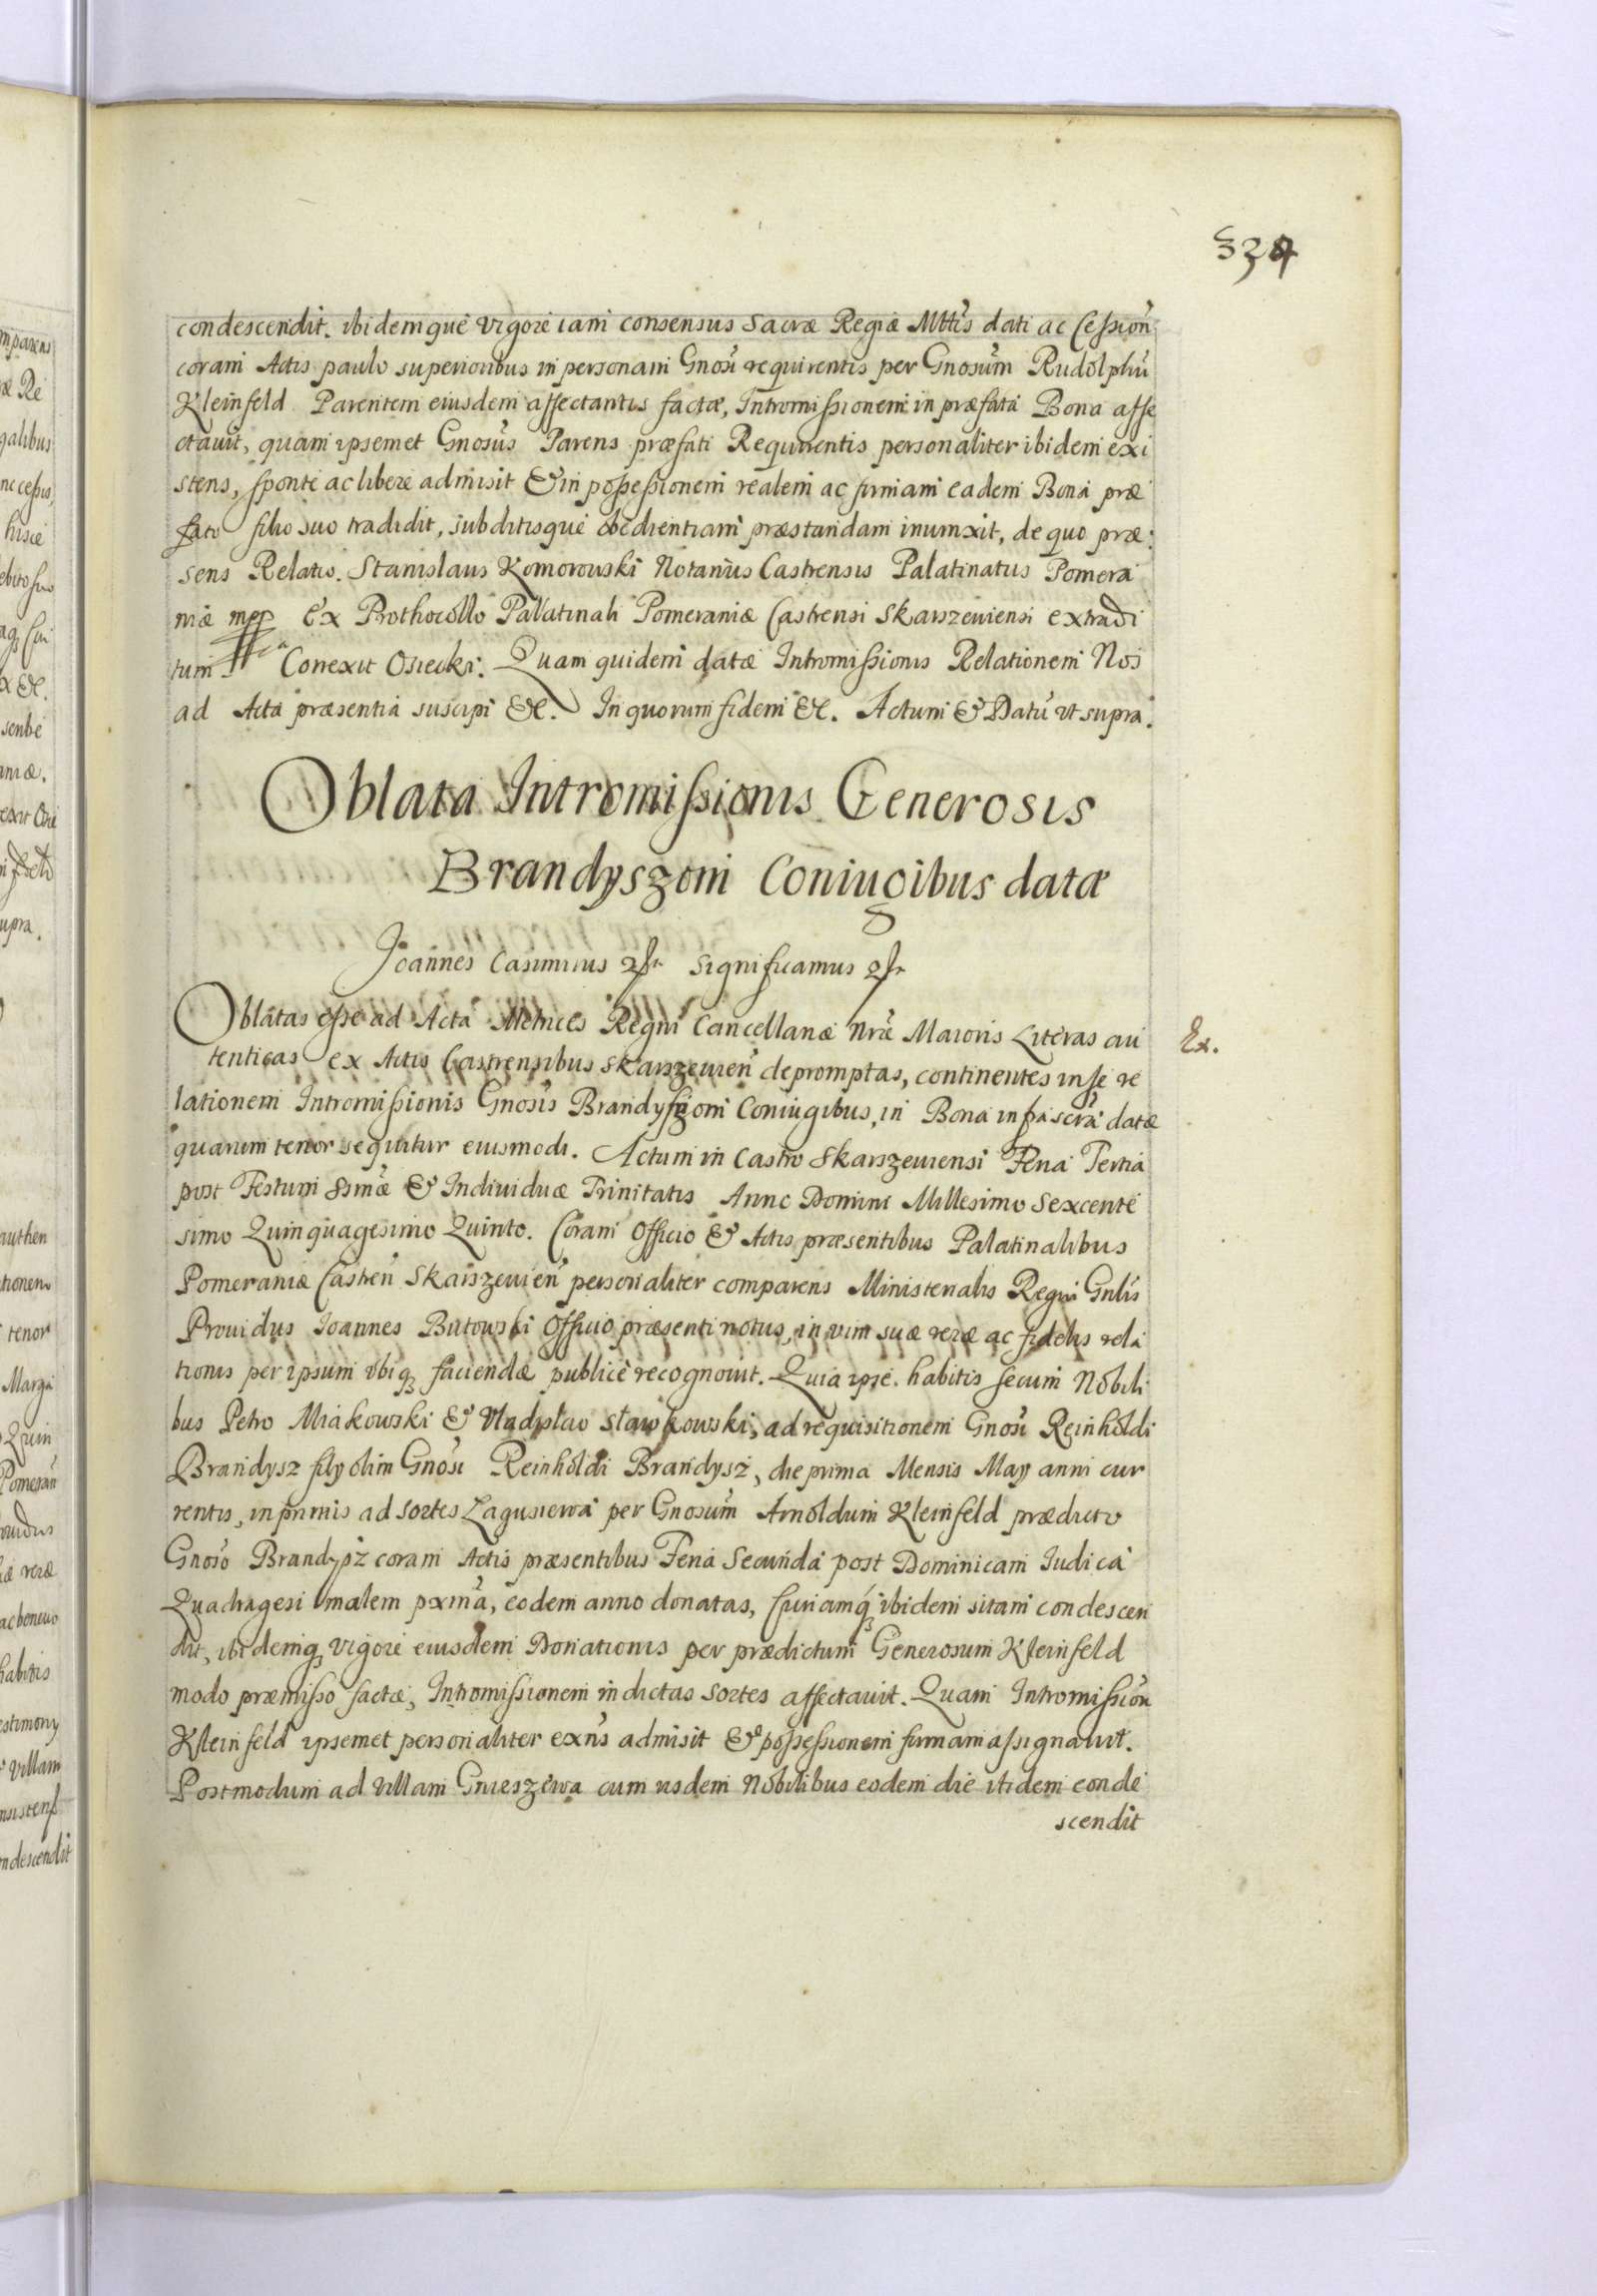 condescendit. ibidemque vigore iam consensus Sacræ Regiæ Mttis dati ac Cession
coram Actis paulo superioribus in personam Gnosi requirentis per Gnosum Rudolphu
Kleinfeld Parentem eiusdem affectantis factæ, Intromissionem in præfata Bona affe
ctauit, quam ipsemet Gnosus Parens præfati Requirentis personaliter ibidem exi
stens, sponte ac libere admisit & in possessionem realem ac firmam eadem Bona præ
fato filio suo tradidit, subditisque obedientiam præstandam iniunxit, de quo præ:
sens Relatio. Stanislaus Komorowski Notarius Castrensis Palatinatus Pomera
niæ mpp Ex Prothocollo Palatinali Pomeraniæ Castrensi Skarszewiensi extradi
tum Correxit Osiecki. Quam quidem datæ Intromissionis Relationem Nos
ad Acta præsentia suscipi &c. In quorum fidem &c. Actum & Datu ut supra.
Oblata Intromissionis Generosis
Brandyszom Coniugibus datæ
Joannes Casimirus Significamus
Oblatas esse ad Acta Metrices Regni Cancellariæ Nræ Maioris Literas au
Ex.
tenticas ex Actis Castrensibus Skarszewien depromptas, continentes in se re
lationem Intromissionis Gnosis Brandyszom Coniugibus, in Bona infrascra datæ
quarum tenor sequitur eiusmodi. Actum in Castro Skarszewiensi Feria Tertia
post Festum Ssmæ & Indiuiduæ Trinitatis Anno Domini Millesimo Sexcente
simo Quinquagesimo Quinto. Coram Officio & Actis præsentibus Palatinalibus
Pomeraniæ Castren Skarszewien personaliter comparens Ministerialis Regni Gnlis
Prouidus Joannes Butowski Officio præsenti notus, in vim suæ veræ ac fidelis rela
tionis per ipsum ubiq faciendæ publice recognouit. Quia ipse habitis secum Nobili
bus Petro Miakowski & Vladislao Sławkowski, ad requisitionem Gnosi Reinholdi
Brandysz filij olim Gnosi Reinholdi Brandysz, die prima Mensis Maij anni cur
rentis, in primis ad sortes Lagusiewa per Gnosum Arnoldum Kleinfeld prædicto
Gnoso Brandysz coram Actis præsentibus Feria Secunda post Dominicam Iudica
Quadragesimalem pxma, eodem anno donatas, Curiamq ibidem sitam condescen
dit, ibidemq vigore eiusdem Donationis per prædictum Generosum Kleinfeld
modo præmisso factæ, Intromissionem in dictas Sortes affectauit. Quam Intromission
Kleinfeld ipsemet personaliter exns admisit & possessionem firmam assignauit.
Postmodum ad Villam Gnieszewa cum iisdem Nobilibus eodem die itidem conde
scendit